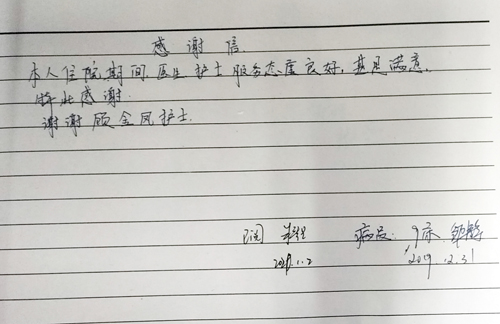 感谢信
本人住院期间,医生护士服务态度良好,甚是满意,
特此感谢.
谢谢顾金凤护士.
阅 病员:9床
2019.12.31